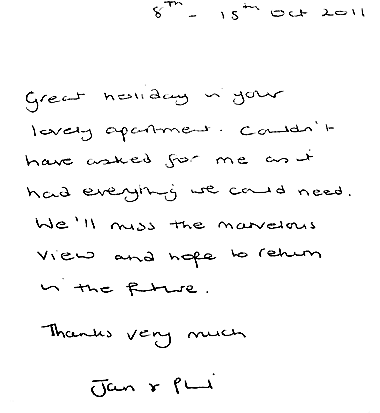 8th - 15th Oct 2011
Great holiday in your
lovely apartment. Couldn't
have asked for me as it
had everything we could need.
We'll miss the marvelous
view and hope to return
in the future.
Thanks very much
Jan & Phil